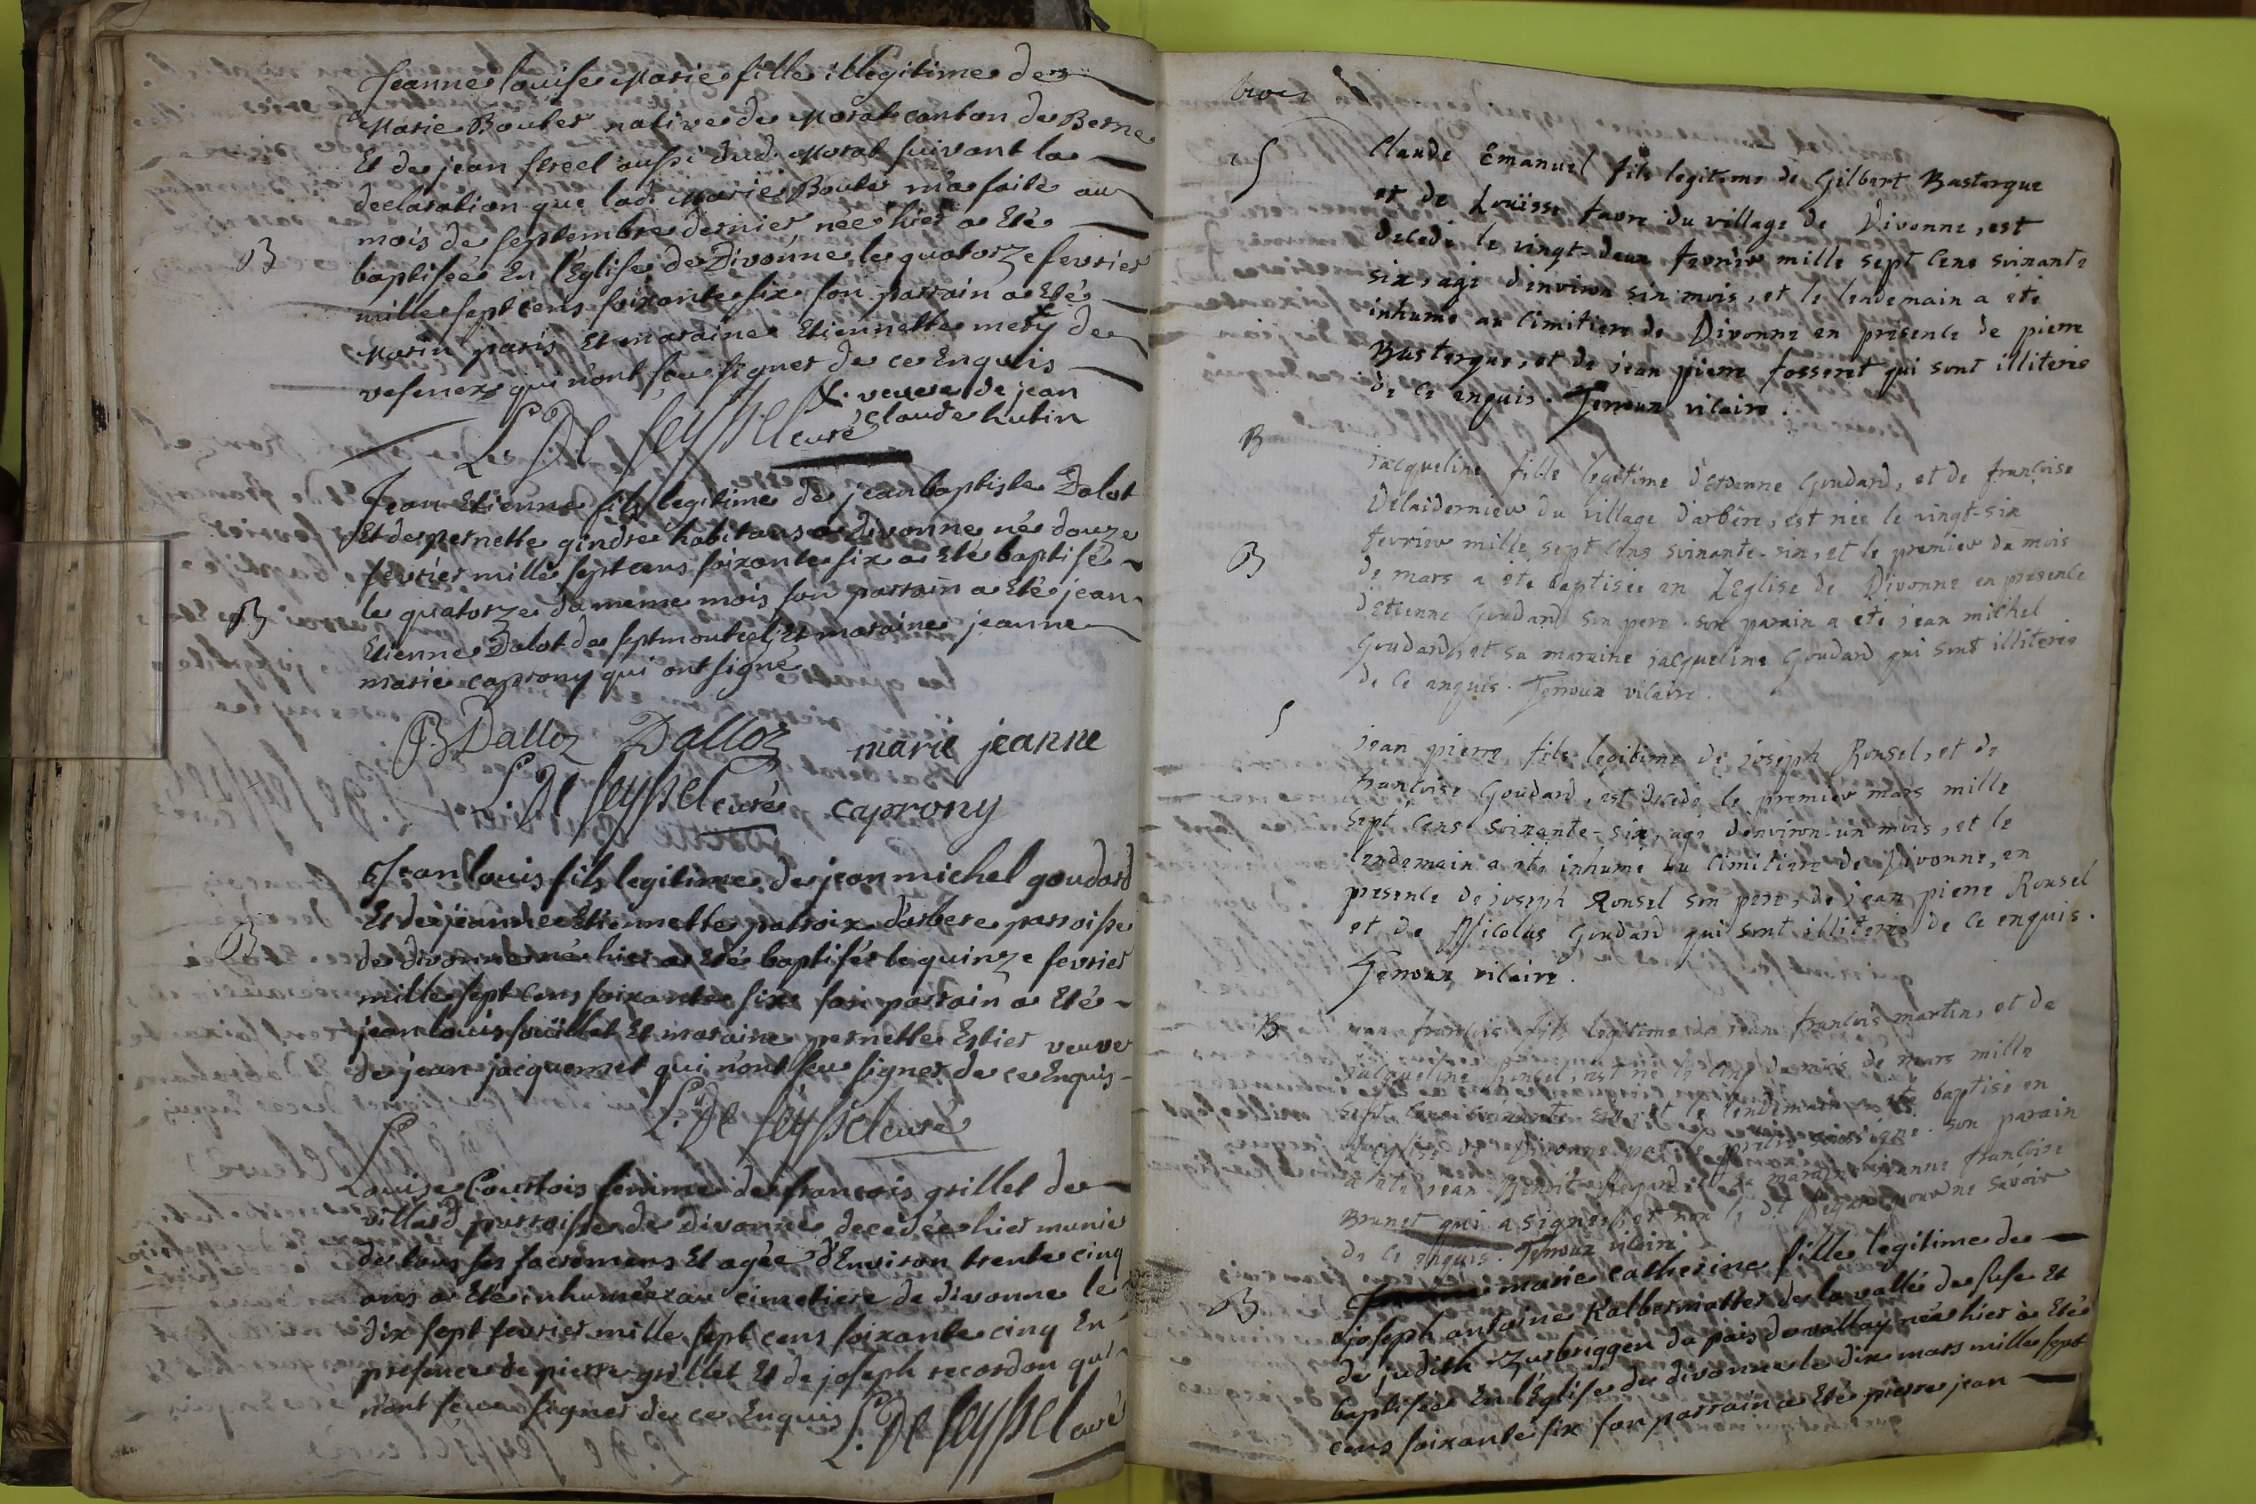 Jeanne louise Marie fille illegitime de
Marie Bouler native de Morat canton de Berne
Et de jean street aussi dud. Morat suivant la
declaration que lad. Marie Bouler m'a faite au
mois de septembre dernier née hier a Eté
B baptiséé En l'Eglise de Divonne le quatorze fevrier
mille sept cens soixante six son parrain a Eté
Marin paris Et maraine Etiennette mery X de
vesenex qui n'ont sçu signer de ce Enquis
X. veuve de jean
claude hutin
L. De seyssel curé
Jean Etienne fils legitime de jean baptiste Dalot
Et de pernette gindre habitans a divonne né douze
février mille sept cens soixante six a Eté baptisé
B le quatorze du meme mois son parrain a Eté jean
Etienne Dalot de septmontcel, Et maraine jeanne
marie caprony qui ont signé
JB Dalloz Dalloz marie jeanne
L. De seyssel curé caprony
Jean louis fils legitime de jean michel goudard
Et de jeanne Etiennette patroix d'arbere parroisse
B de divonne né hier a Eté baptisé le quinze fevrier
mille sept cens soixante six son parrain a Eté
jean louis foüillet Et maraine pernette Estier veuve
de jean jacquemet qui n'ont sçu signer de ce Enquis
L. De seyssel curé
Louise Courtois femme de françois grillet de
villard parroisse de Divonne decedée hier munie
de tous ses sacremens Et agée d'Environ trente cinq
ans a Eté inhumée au cimetiere de divonne le
dix sept fevrier mille sept cens soixante cinq En
presence de pierre grillet Et de joseph recordon qui
n'ont sceu signer de ce Enquis L. De seyssel curé
trois
S Claude Emanuel fils legitime de Gilbert Bastergue
et de Loüisse favre du village de Divonne, est
decedé le vingt-deux fevrier mille sept cens soixante
six, agé d'environ six mois, et le lendemain a eté
inhumé au cimitiere de Divonne en presence de pierre
Bastergue, et de jean pierre fosseret qui sont illiterés
de ce enquis. Jenoux vicaire.
B jacqueline fille legitime d'etienne Goudard, et de françoise
Delaidernier du village d'arbère, est née le vingt-six
B fevrier mille sept cens soixante-six, et le premier du mois
de mars a été baptisée en l'Eglise de Divonne en presence
d'etienne Goudard son pere. son parain a eté jean michel
Goudard, et sa maraine jacqueline Goudard qui sont illiterés
de ce enquis. Jenoux vicaire.
S jean pierre fils legitime de joseph Rousel, et de
françoise Goudard, est decedé le premier mars mille
sept cens soixante-six, agé d'environ un mois, et le
lendemain a eté inhumé au cimitiere de Divonne, en
presence de joseph Rousel son pere, de jean pierre Rousel
et de Nicolas Goudard qui sont illiterés de ce enquis.
Jenoux vicaire.
B jean françois fils legitime de jean françois martin, et de
jacqueline Rousel, est né le cinq du mois de mars mille
sept cens soixante six, et le lendemain a eté baptisé en
l'eglise de Divonne par le prêtre soussigné. son parain
a eté jean Benoit Regard, et sa maraine jeanne françoise
Brunet qui a signé, et non le dt Regard pour ne savoir
de ce enquis. Jenoux vicaire.
B marie catherine fille legitime de
joseph antoine Kalbermatter de la vallé de suse Et
de judith Zurbriggen du païs de vallay née hier a Eté
baptisée En l'Eglise de divonne le dix mars mille sept
cens soixante six son parrain a Eté pierre jean